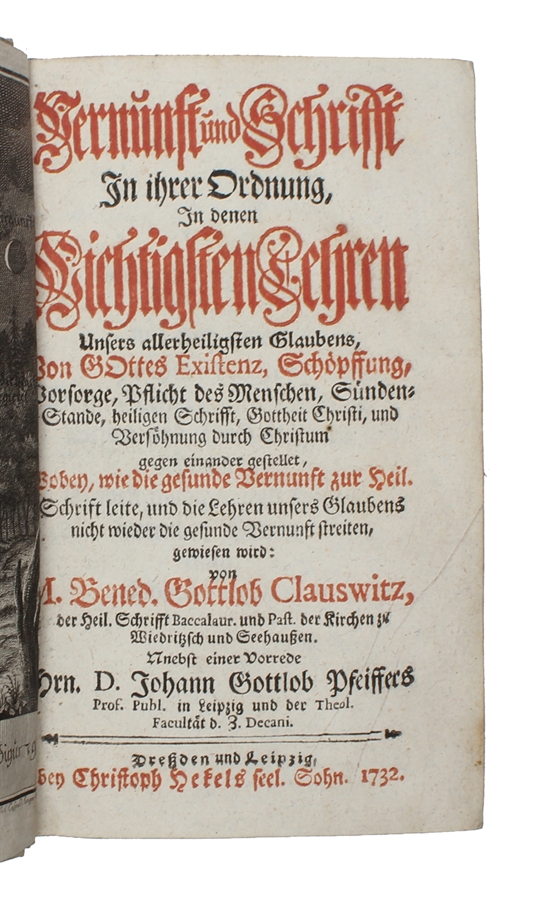 Vernunft und Schrifft
In ihrer Ordnung,
In denen
Wichtigsten Lehren
Unsers allerheiligsten Glaubens,
Von GOttes Existenz, Schöpffung,
Vorsorge, Pflicht des Menschen, Sünden-
Stande, heiligen Schrifft, Gottheit Christi, und
Versöhnung durch Christum
gegen einander gestellet,
Wobey, wie die gesunde Vernunft zur Heil.
Schrift leite, und die Lehren unsers Glaubens
nicht wieder die gesunde Vernunft streiten,
gewiesen wird:
von
M. Bened. Gottlob Clauswitz,
der Heil. Schrifft Baccalaur. und Past. der Kirchen zu
Wiedritzsch und Seehaußen.
Nnebst einer Vorrede
Hrn. D. Johann Gottlob Pfeiffers
Prof. Publ. in Leipzig und der Theol.
Facultät d. Z. Decani.
Dreßden und Leipzig,
bey Christoph Hekels seel. Sohn. 1732.